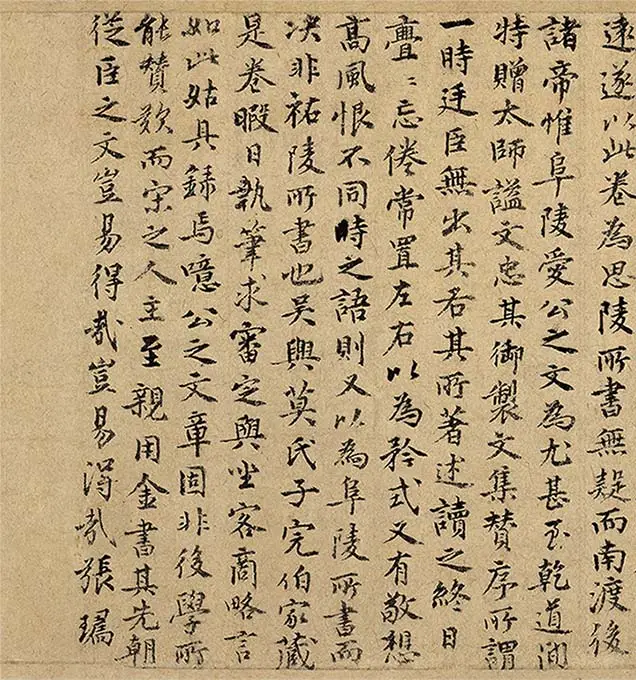 遠遂以此卷為思陵所書無疑而南渡後
諸帝惟阜陵愛公之文為尤甚至乾道間
特贈太師謚文忠其御製文集贊序所謂
一時廷臣無出其右其所著述讀之終日
亹〻忘倦常置左右以為矜式又有敬想
高風恨不同時之語則又以為阜陵所書而
决非祐陵所書也吴興莫氏子完伯家藏
是卷暇日執筆求審定與坐客商略言
如此姑具錄焉噫公之文章固非後學所
能贊欤而宋之人主至親用金書其先朝
從臣之文豈易得哉豈易得哉張瑀